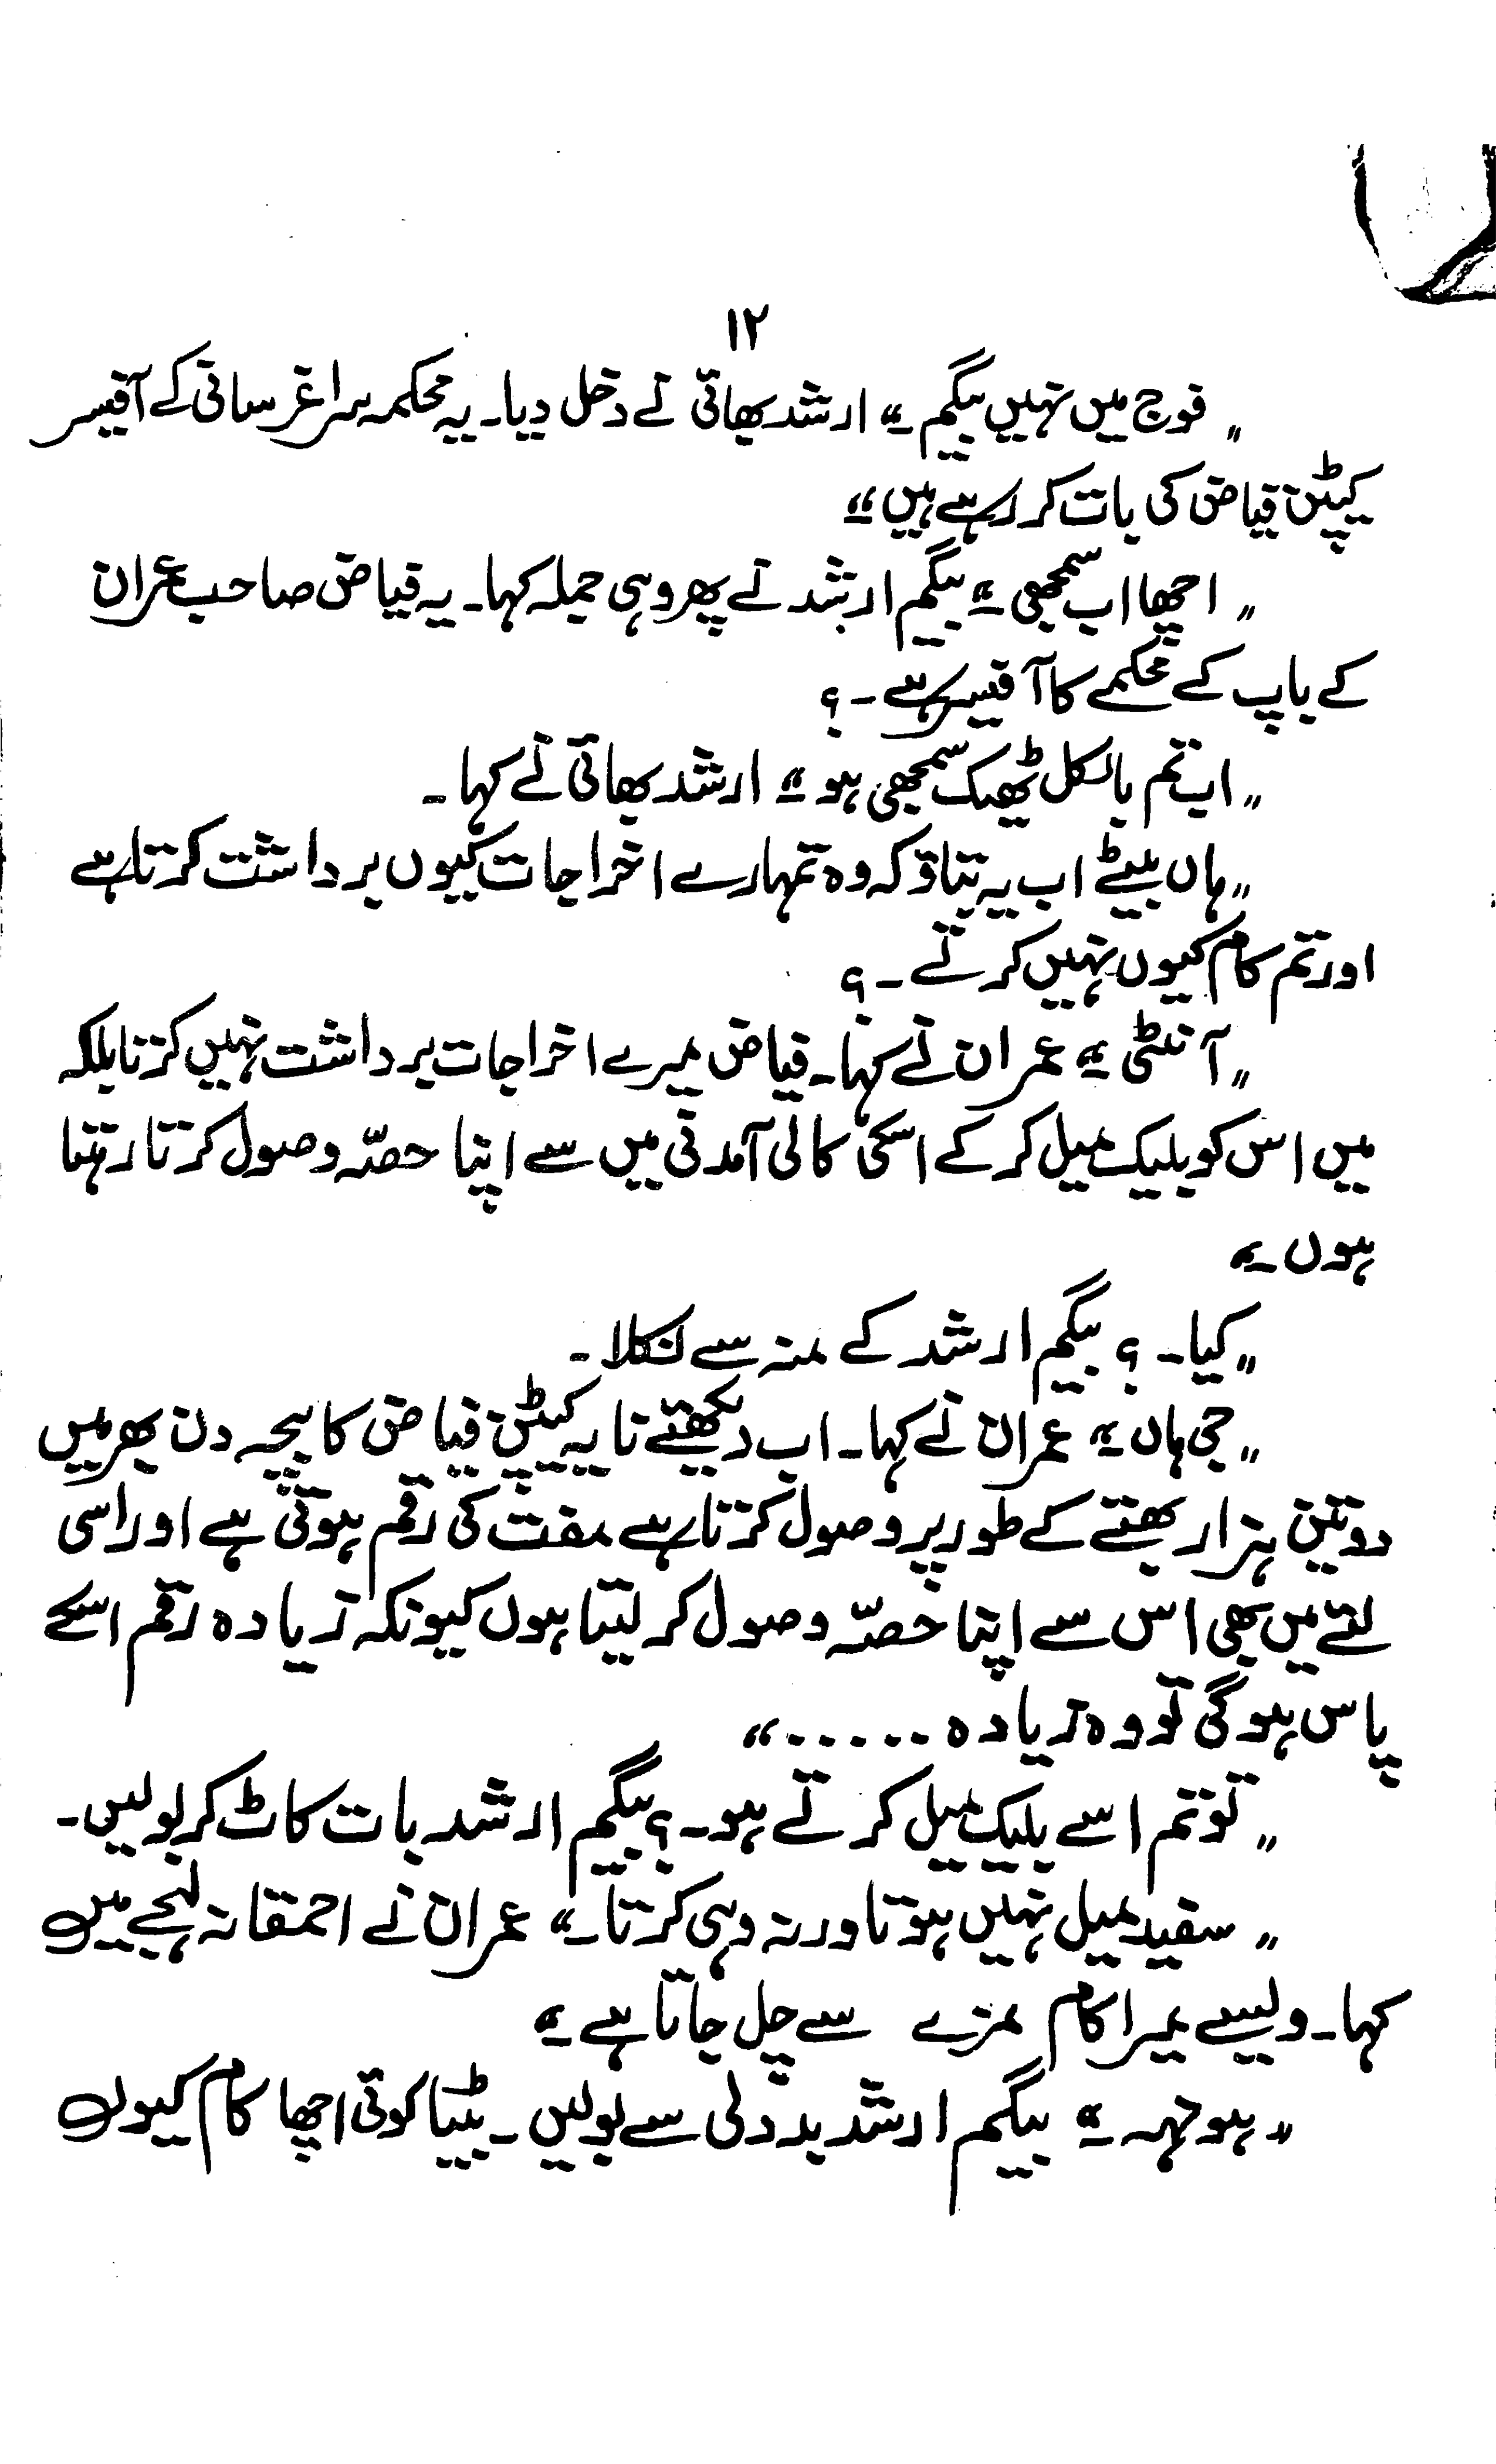 ۱۲
”فوج میں نہیں بیگم۔“ ارشد بھائی نے دخل دیا۔ یہ محکمہ سراغرسانی کے آفیسر
کیپٹن فیاض کی بات کر رہے ہیں۔“
”اچھا اب سمجھی۔“ بیگم ارشد نے پھر وہی جملہ کہا۔ یہ فیاض صاحب عمران
کے باپ کے محکمے کا آفیسر ہے۔؟
”اب تم بالکل ٹھیک سمجھی ہو۔“ ارشد بھائی نے کہا۔
”ہاں بیٹے اب یہ بتاؤ کہ وہ تمہارے اخراجات کیوں برداشت کرتا ہے
اور تم کام کیوں نہیں کرتے۔؟
”آنٹی۔“ عمران نے کہا۔ فیاض میرے اخراجات برداشت نہیں کرتا بلکہ
میں اس کو بلیک میل کر کے اسکی کالی آمدنی میں سے اپنا حصّہ وصول کرتا رہتا
ہوں۔“
”کیا۔؟ بیگم ارشد کے منہ سے نکلا۔
”جی ہاں۔“ عمران نے کہا۔ اب دیکھئے نا یہ کیپٹن فیاض کا بچہ دن بھر میں
دو تین ہزار بھتے کے طور پر وصول کرتا ہے مفت کی رقم ہوتی ہے اور اسی
لئے میں بھی اس سے اپنا حصّہ وصول کر لیتا ہوں کیونکہ زیادہ رقم اسکے
پاس ہو گی تو وہ زیادہ ......“
”تو تم اسے بلیک میل کرتے ہو۔؟ بیگم ارشد بات کاٹ کر بولیں۔
”سفید میل نہیں ہوتا ورنہ وہی کرتا۔“ عمران نے احمقانہ لہجے میں
کہا۔ ویسے میرا کام مزے سے چل جاتا ہے۔“
”ہونہہ۔“ بیگم ارشد بددلی سے بولیں۔ بیٹا کوئی اچھا کام کیوں